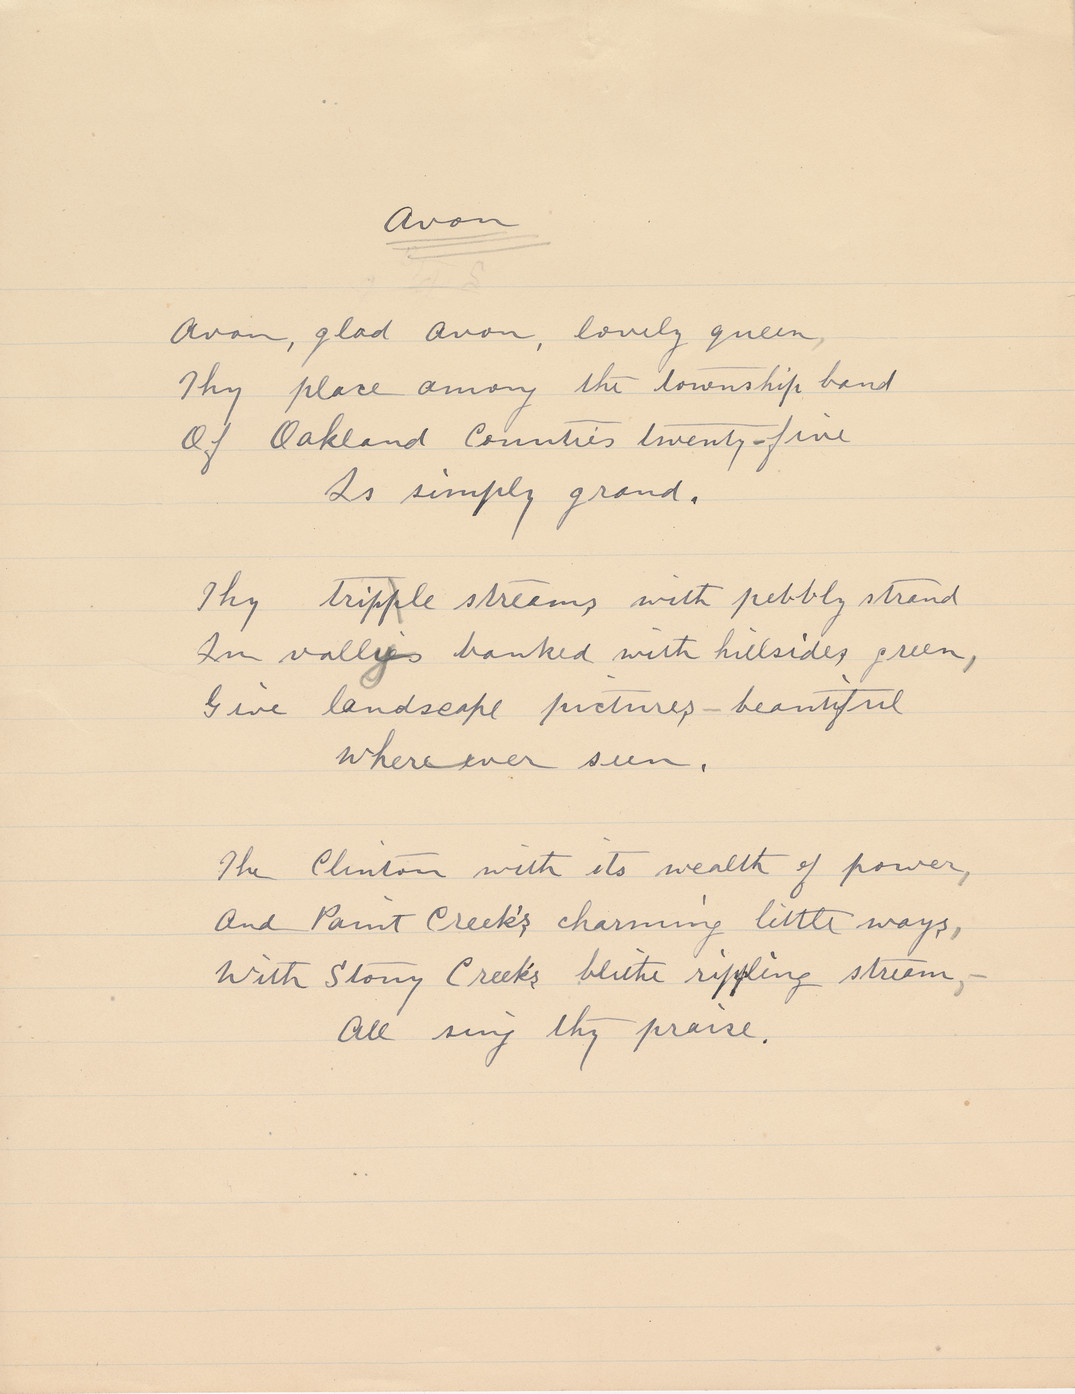 Avon
Avon, glad Avon, lovely queen,
Thy place among the township band
Of Oakland Counties twenty-five
Is simply grand.
Thy tripple streams with pebbly strand
In vallys banked with hillsides green,
Give landscape pictures - beautiful
Where ever seen.
The Clinton with its wealth of power,
And Paint Creek's charming little ways,
With Stony Creek's blithe rippling stream, -
All sing thy praise.